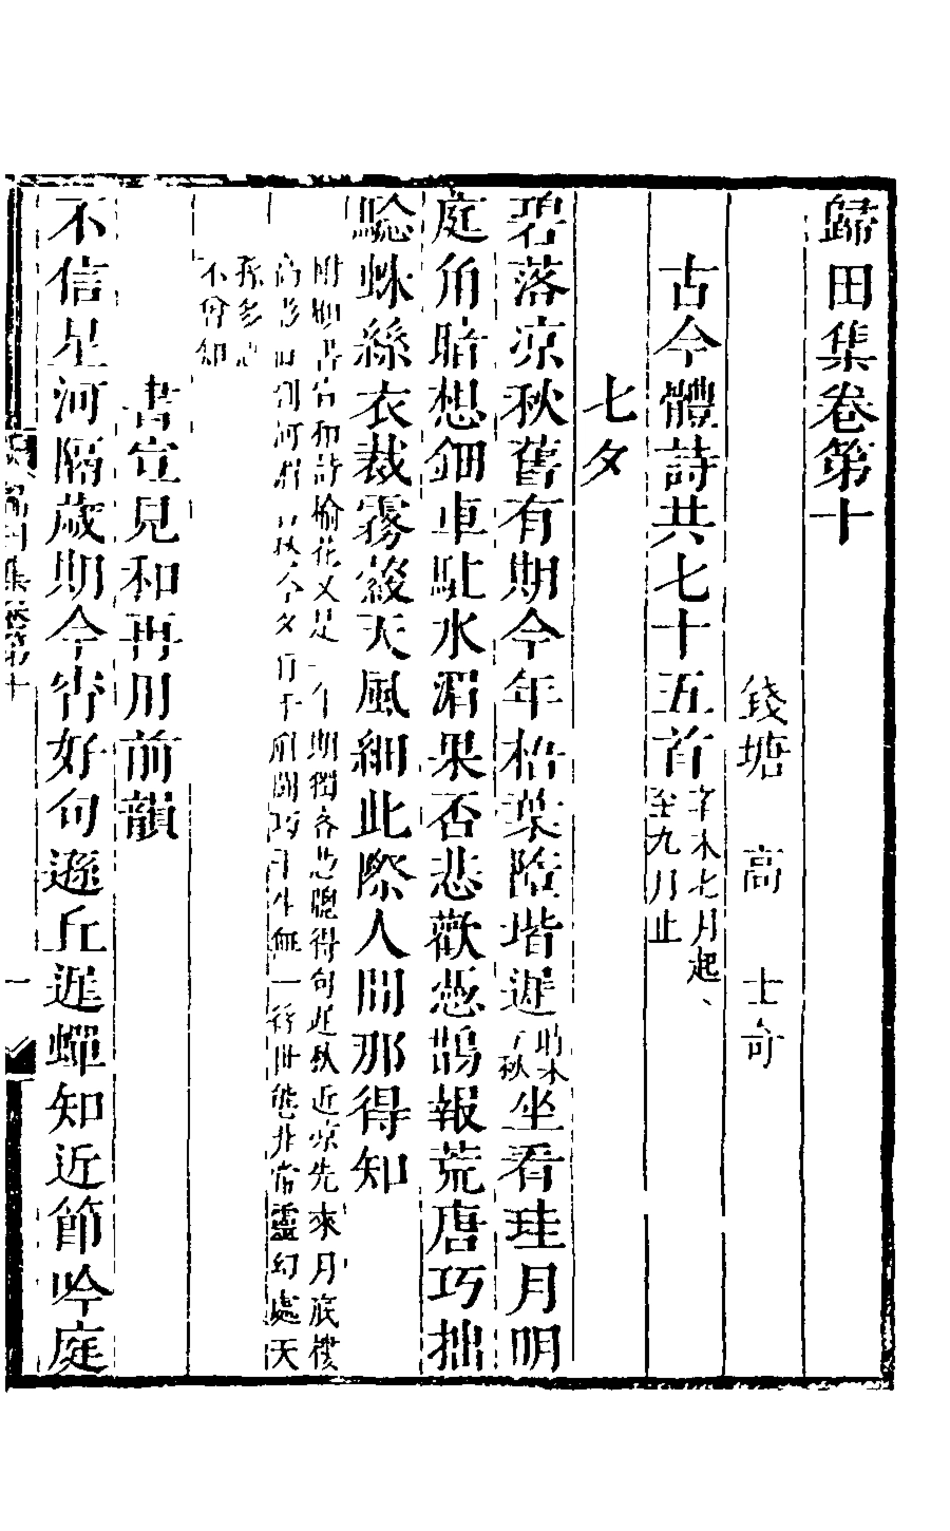 歸田集卷第十
錢塘 高 士奇
古今體詩共七十五首辛未七月起、至九月止
七夕
碧落凉秋舊有期今年梧葉陸堦遲時未立秋坐看珪月明
庭角暗想鈿車駐水湄果否悲歡憑鵲報荒唐巧拙
驗蛛絲衣裁霧縠天風細此際人間那得知
附勵書宣和詩榆花又是一年期獨客愁聽得句遲秋近凉先來月底樓
高影 到河湄 今夕行千 鬬巧 牛無一 世態非常靈幻處天
孫多 不曾知
書宣見和再用前韻
不信星河隔歲期今宵好句遜丘遲蟬知近節吟庭
歸田集卷第十
一